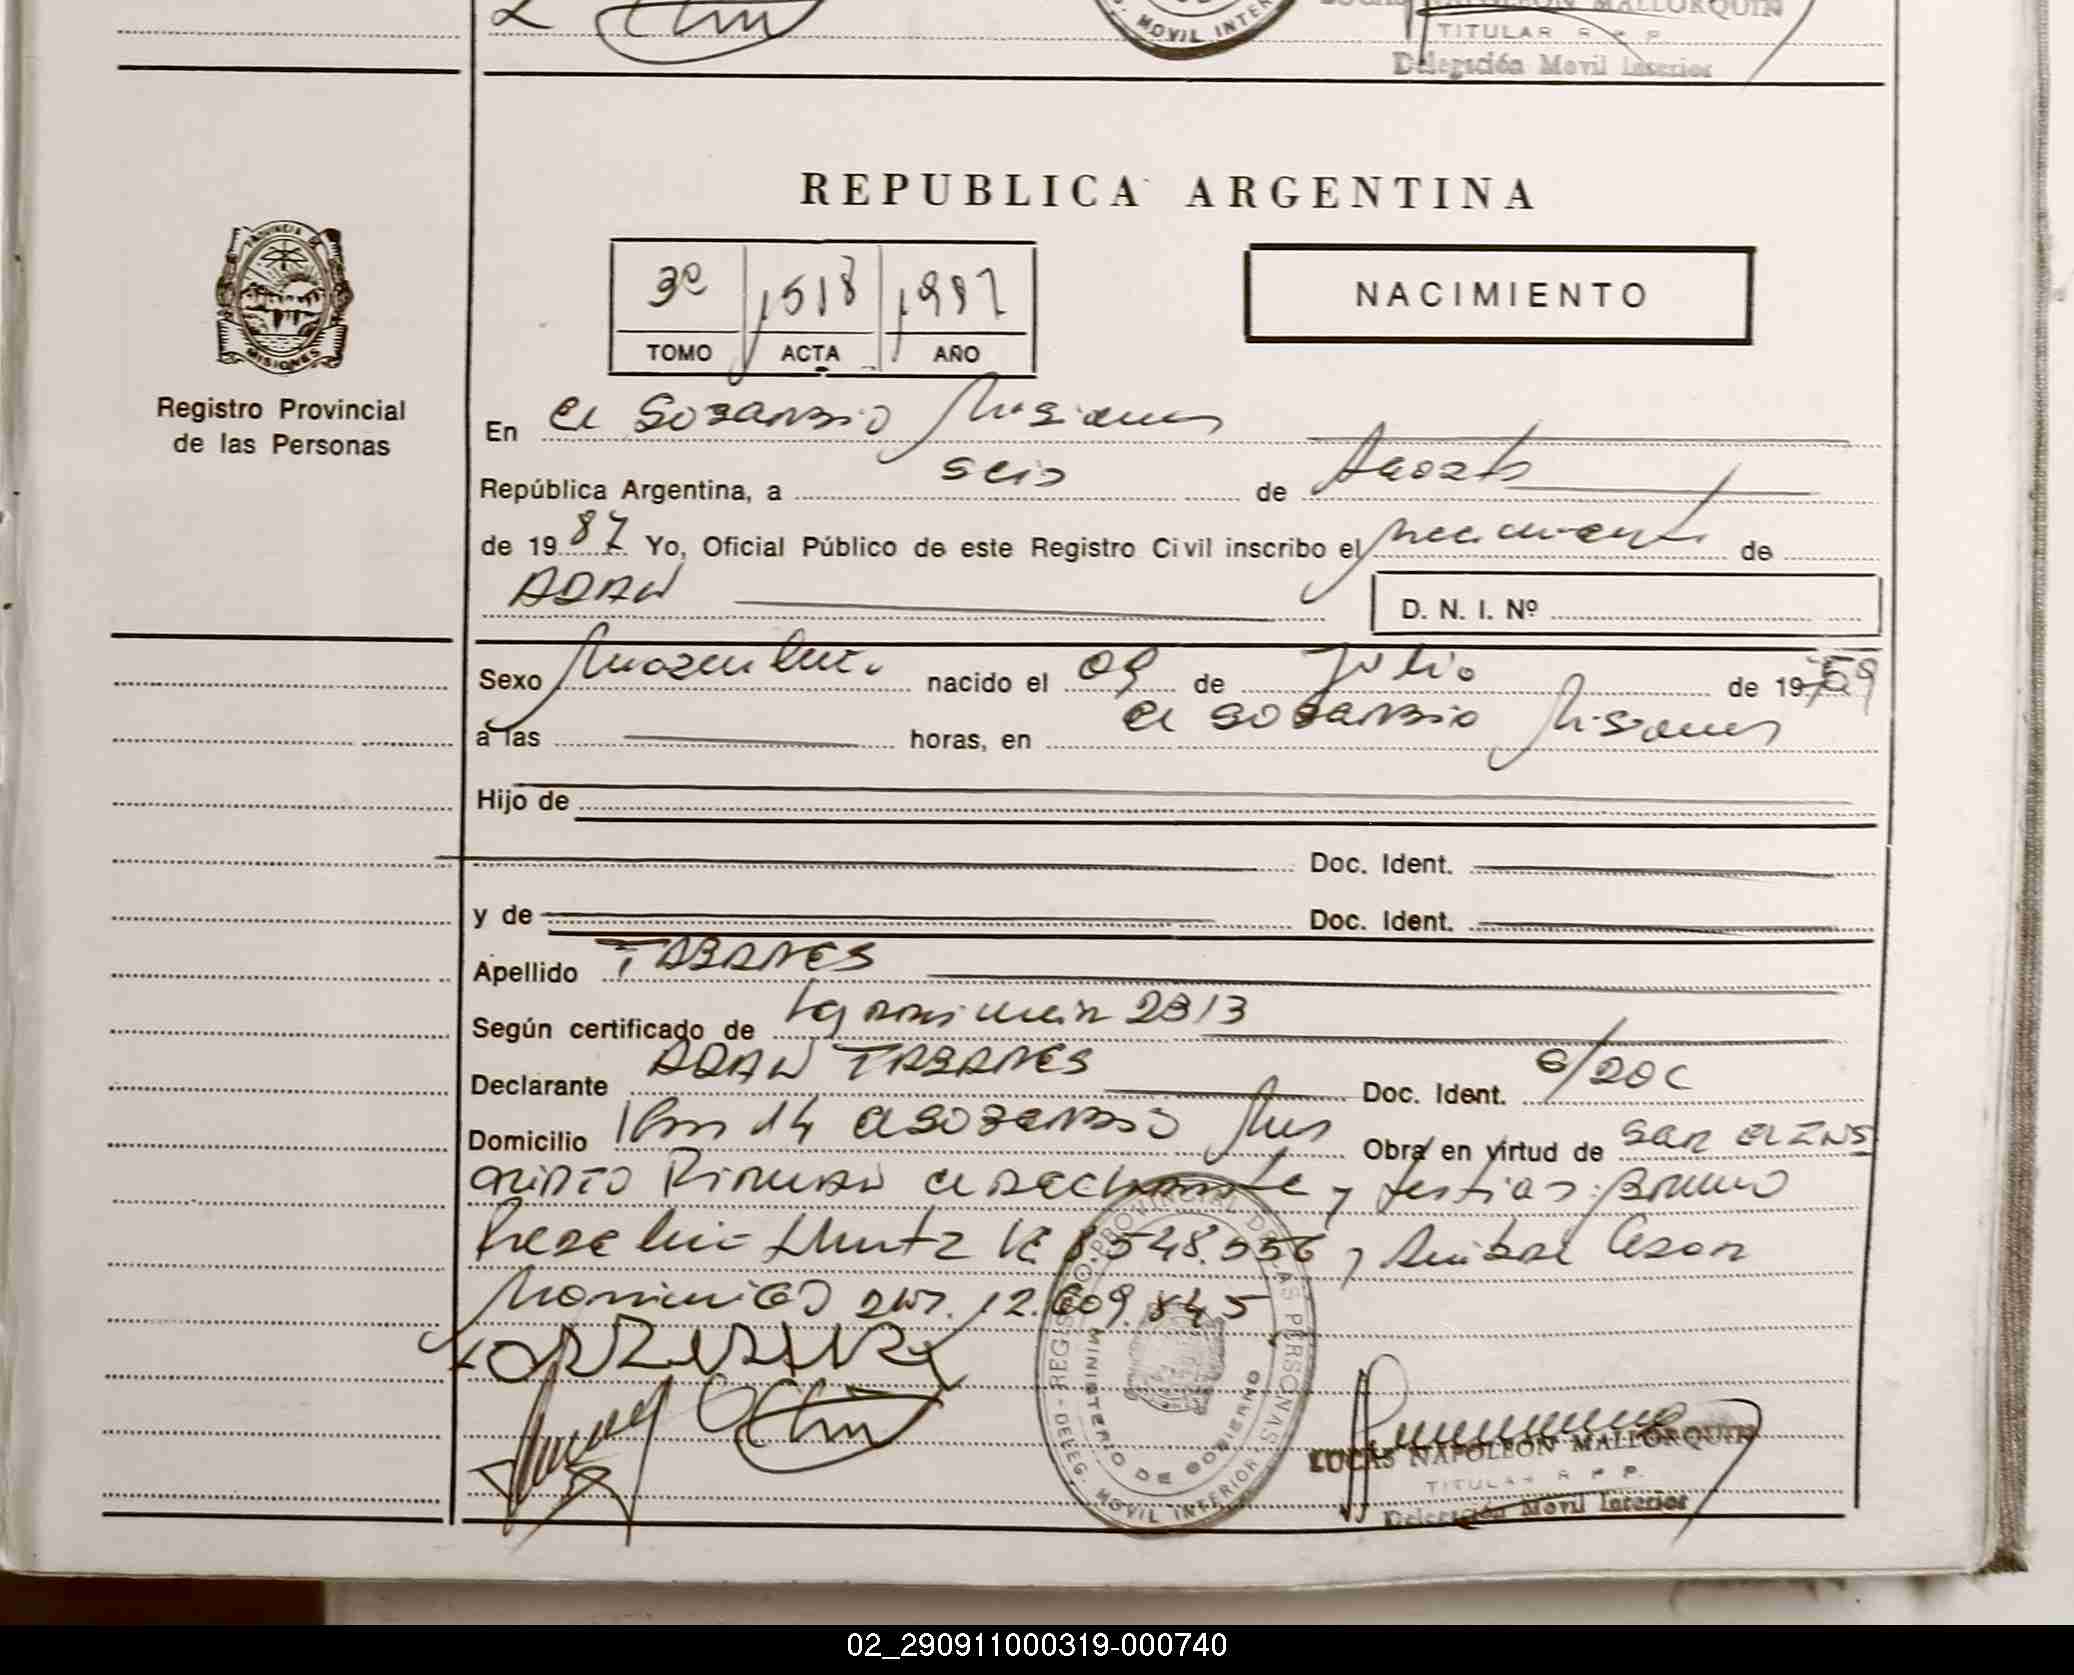 S. MOVIL INTER
LUCAS NAPOLEON MALLORQUIN
TITULAR R P P.
Delegación Movil Interior
REPUBLICA ARGENTINA
PROVINCIA DE MISIONES
Registro Provincial
de las Personas
3º 1518 1987
TOMO ACTA AÑO
NACIMIENTO
En El Soberbio Misiones
República Argentina, a seis de Agosto
de 1987 Yo, Oficial Público de este Registro Civil inscribo el nacimiento de
ADAN
D. N. I. Nº
Sexo Masculino nacido el 09 de Julio de 1959
a las horas, en El Soberbio Misiones
Hijo de
Doc. Ident.
y de Doc. Ident.
Apellido TABARES
Según certificado de 2813
Declarante ADAN TABARES Doc. Ident. S/DOC
Domicilio Km 14 El Soberbio Mnes Obra en virtud de
Firman el declarante y testigos: Bruno
8.548.556 y Anibal Cesar
DNI. 12.609.845
REGISTRO PROVINCIAL DE LAS PERSONAS
DELEG. MOVIL INTERIOR
MINISTERIO DE GOBIERNO
LUCAS NAPOLEON MALLORQUIN
TITULAR R P P.
Delegación Movil Interior
02_290911000319-000740